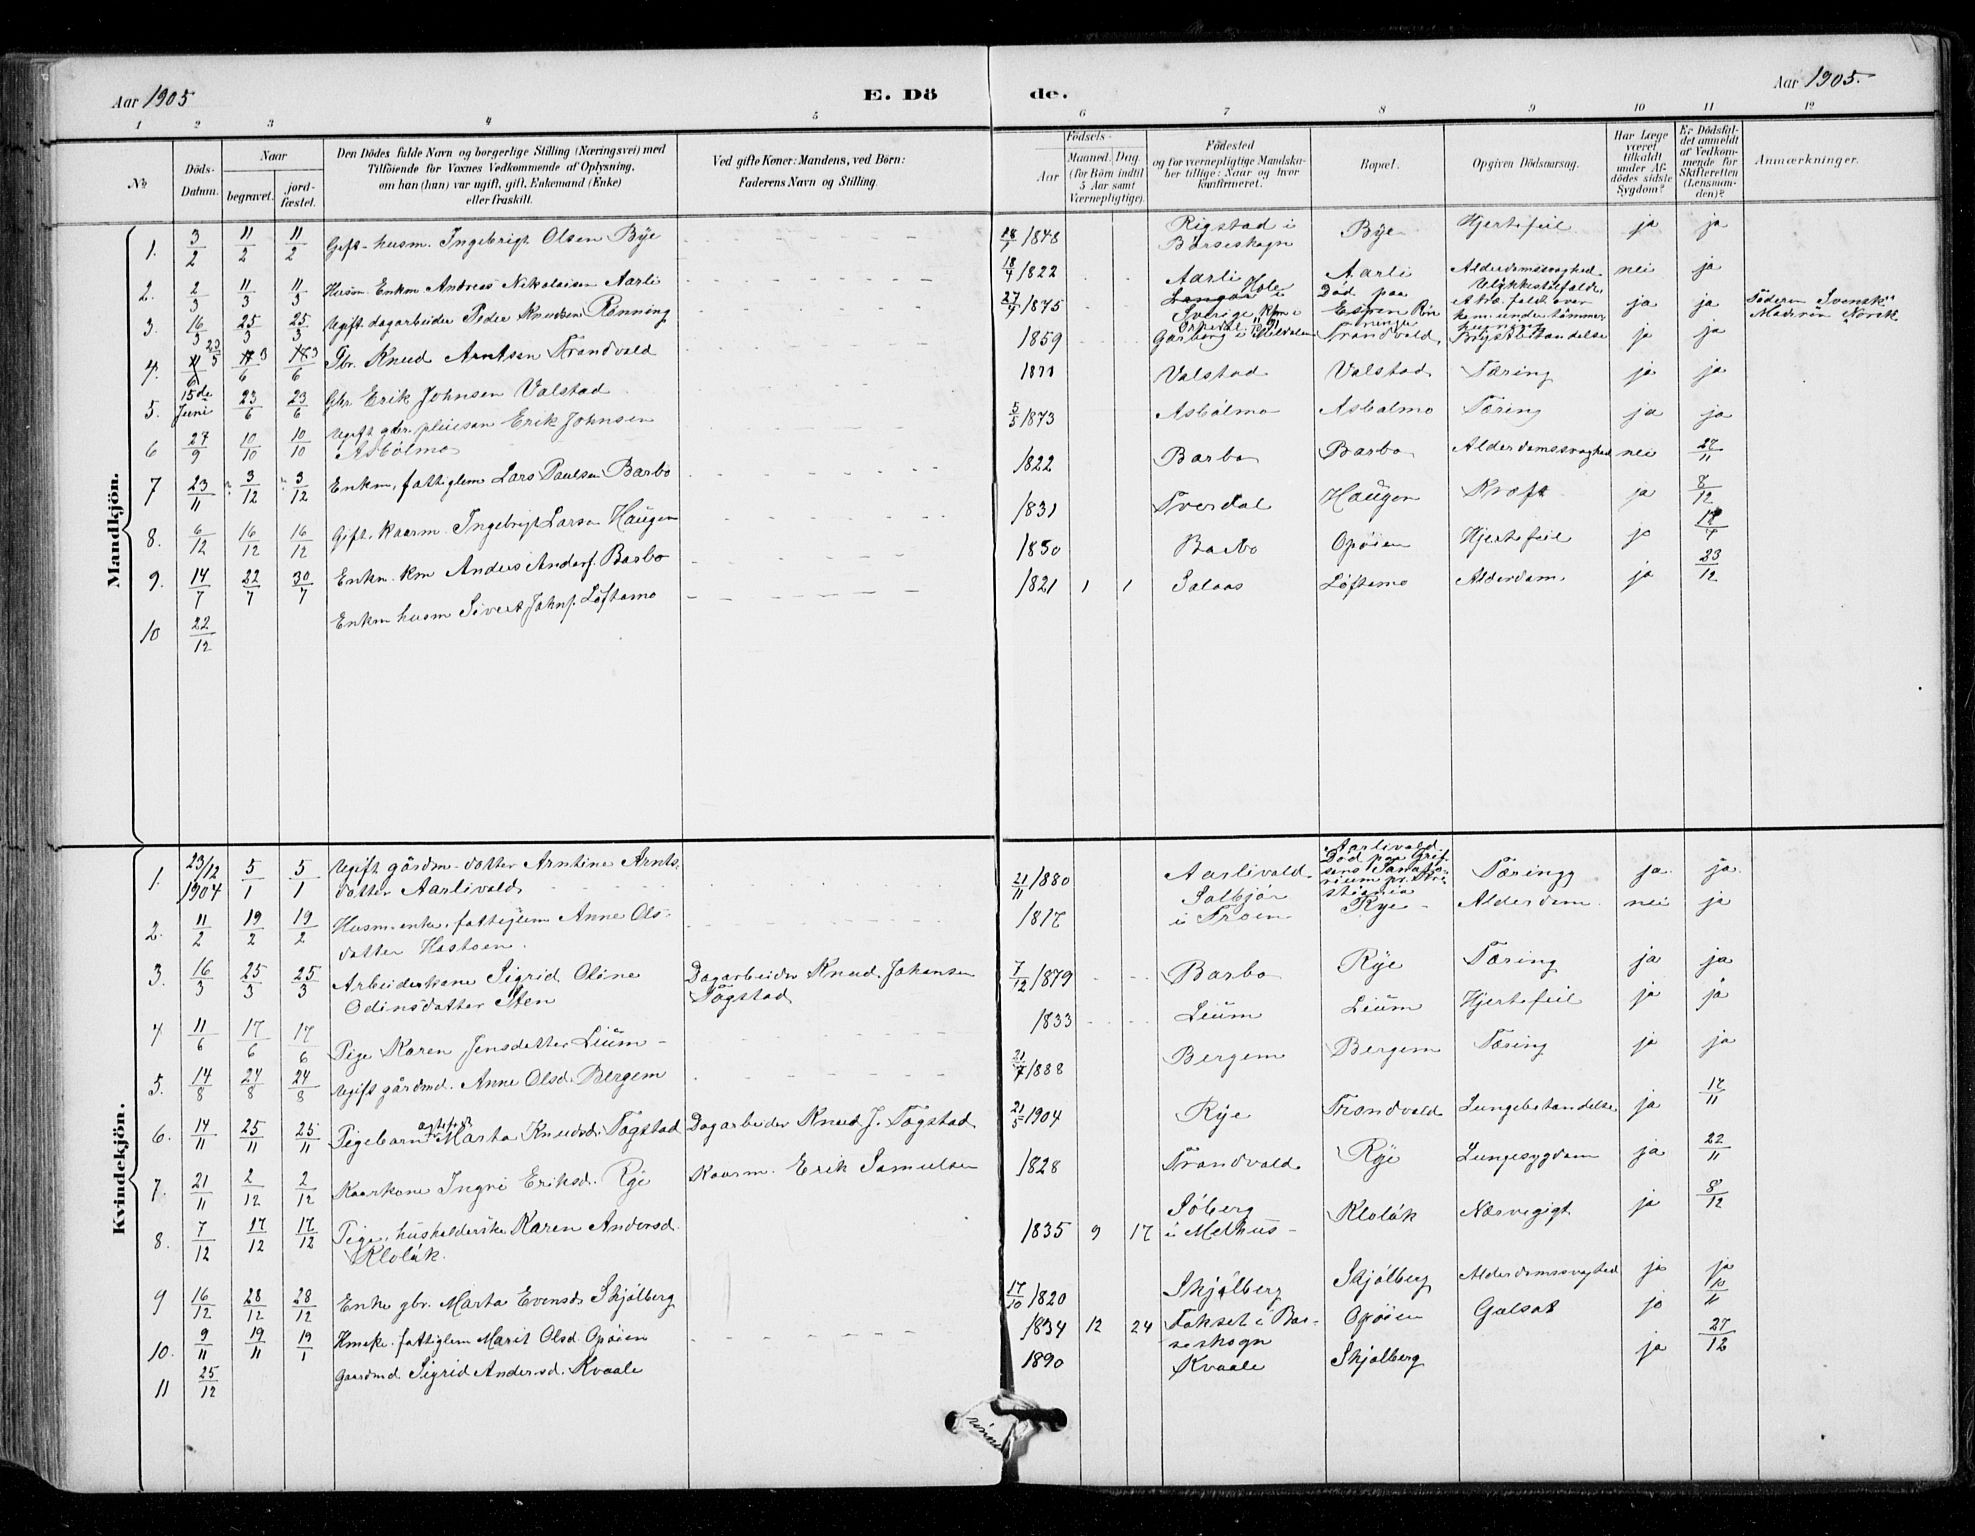 Aar 1905
E. Dö
de.
Aar 1905.
1 2 3 4 5 6 7 8 9 10 11 12
No.
Döds-Datum.
Naar
begravet.
jord-fæstet.
Den Dödes fulde Navn og borgerlige Stilling (Næringsvei) med
Tilföiende for Voxnes Vedkommende af Oplysning,
om han (hun) var ugift, gift, Enkemand (Enke)
eller fraskilt.
Ved gifte Koner: Mandens, ved Børn:
Faderens Navn og Stilling.
Födsels-
Aar
Maaned. Dag
(for Börn indtil
5 Aar samt
Værnepligtige).
Födested
og for værnepligtige Mandska-
ber tillige: Naar og hvor
konfirmeret.
Bopæl.
Opgiven Dödsaarsag.
Har Læge
været
tilkaldt
under Af-
dödes sidste
Sygdom?
Er Dödsfal-
det anmeldt
af Vedkom-
mende for
Skifteretten
(Lensman-
den)?
Anmærkninger.
Mandkjön.
1. 3/2 11/2 11/2 Gift husm. Ingebrigt Olsen Bye 18/1 1848 Rigstad i Børseskogn Bye Hjertefeil ja ja
2. 2/3 11/3 11/3 Husm. Enkm Andreas Nikolaisen Aarli 18/4 1822 Aarli Aarli Alderdomssvaghed nei ja
3. 16/3 25/3 25/3 Ugift dagarbeider Peder Knudsen Rønning 27/9 1875 i Sverige Død paa Ulykkestilfælde ja ja Föderen Svensk Moderen Norsk
4. 23/5 3/6 3/6 Gbr. Knud Arntsen Trondvold 1859 Garberg i Meldalen Trondvold Brystbetændelse ja ja
5. 15de Juni 23/6 23/6 Gbr. Erik Johnsen Valstad Valstad Valstad Tæring ja ja
6 27/9 10/10 10/10 Ugift gbr. pleiesøn Erik Johnsen Asbølmo 5/5 1873 Asbølmo Asbølmo Tæring ja ja
7 23/11 3/12 3/12 Enkm. fattiglem Lars Paulsen Barbo 1822 Barbo Barbo Alderdomssvaghed nei 27/11
8. 6/12 16/12 16/12 Gift kaarm. Ingebrigt Larsen Haugen 1831 Tverdal Haugen Kræft ja 8/12
9. 14/7 22/7 30/7 Enkm. km Anders Andersf. Barbo 1850 Barbo Opøien Hjertefeil ja
10 22/12 Enkm husm Sivert Johnf. Løftamo 1821 1 1 Salaas Løftamo Alderdom ja 23/12
Kvindekjön.
1. 23/12 1904 5/1 5/1 Ugift gårdm.datter Arntine Arnts- datter Aarlivold 21/11 1880 Aarlivold Aarlivold Død paa Gref- sens Sanato- rium pr. Kri- stiania Tæring ja ja
2. 11/2 19/2 19/2 Husm.enke, fattiglem Anne Ols- datter Hastoen. 1817 Solbjør i Troen Rye Alderdom nei ja
3. 16/3 25/3 25/3 Arbeiderkone Sigrid Oline Odinsdatter Sten Dagarbeider Knud Johansen Togstad 7/12 1879 Barbo Rye Tæring ja ja
4 11/6 17/6 17/6 Pige Karen Jensdatter Lium 1833 Lium Lium Hjertefeil ja ja
5. 14/8 24/8 24/8 Ugift gårdmd. Anne Olsd. Bergem 21/7 1888 Bergem Bergem Tæring ja ja
6. 14/11 25/11 25/11 Pigebarn ægtefødt Marta Knudsd. Togstad Dagarbeider Knud J. Togstad 21/5 1904 Rye Trondvold Lungebetændelse ja 17/11
7. 21/11 2/12 2/12 Kaarkone Ingri Eriksd. Rye Kaarm. Erik Samuelsen 1828 Trondvold Rye Lungesygdom ja 22/11
8. 7/12 17/12 17/12 Pige, husholderske Karen Andersd. Kloløk. 1835 9 17 Søberg i Melhus Kloløk ja 8/12
9 16/12 28/12 28/12 Enke gbr. Marta Evensd. Skjølberg 17/10 1820 Skjølberg Skjølberg Alderdomssvaghed ja ja
10. 9/11 19/11 19/1 Hmeke. fattiglem Marit Olsd. Opøien 1834 12 24 i Bør- seskogn Opøien Gulsot ja 10/11
11 25/12 Gaardmd Sigrid Andersd. Kvaale 1890 Kvaale Skjølberg ja 27/12